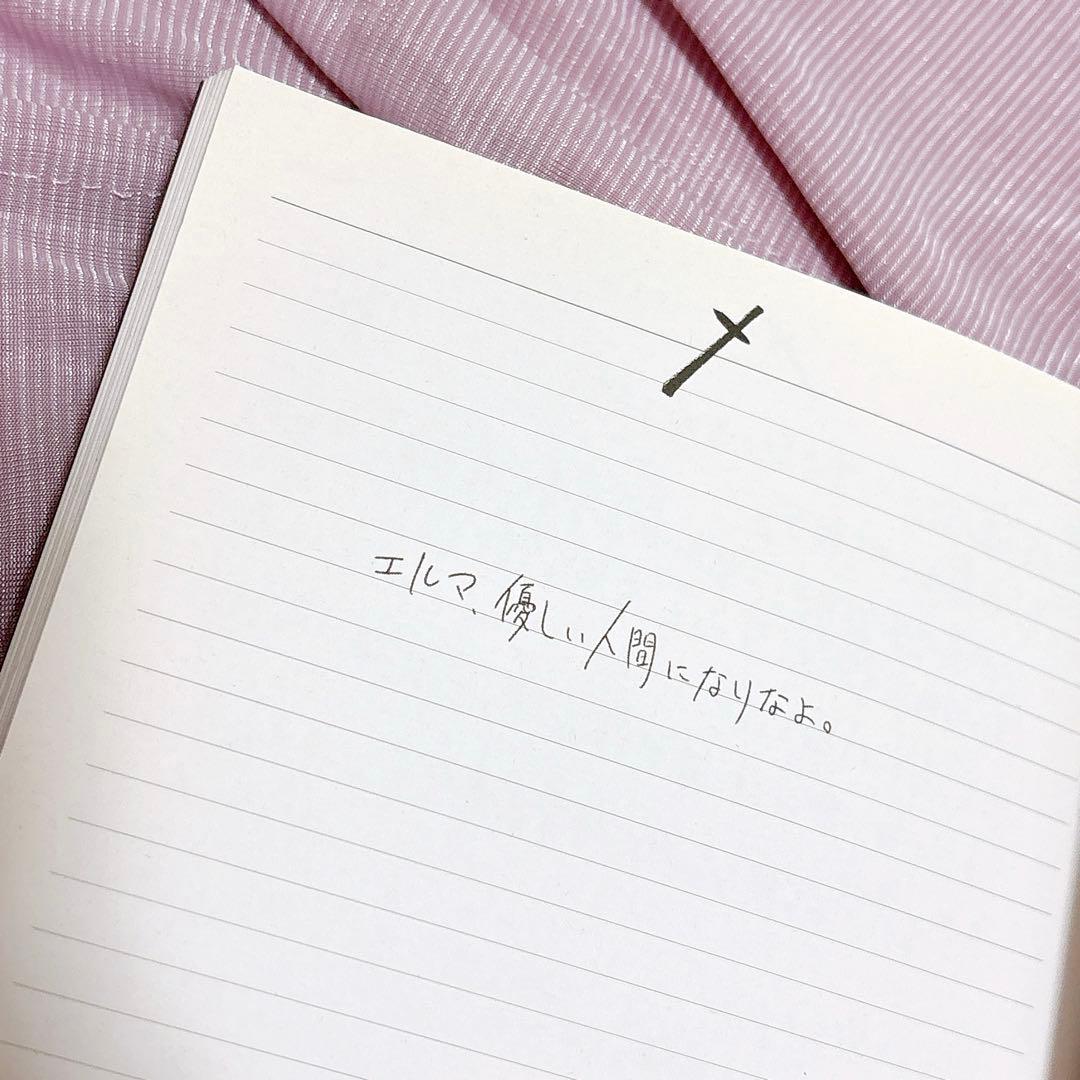 エルマ、優しい人間になりなよ。